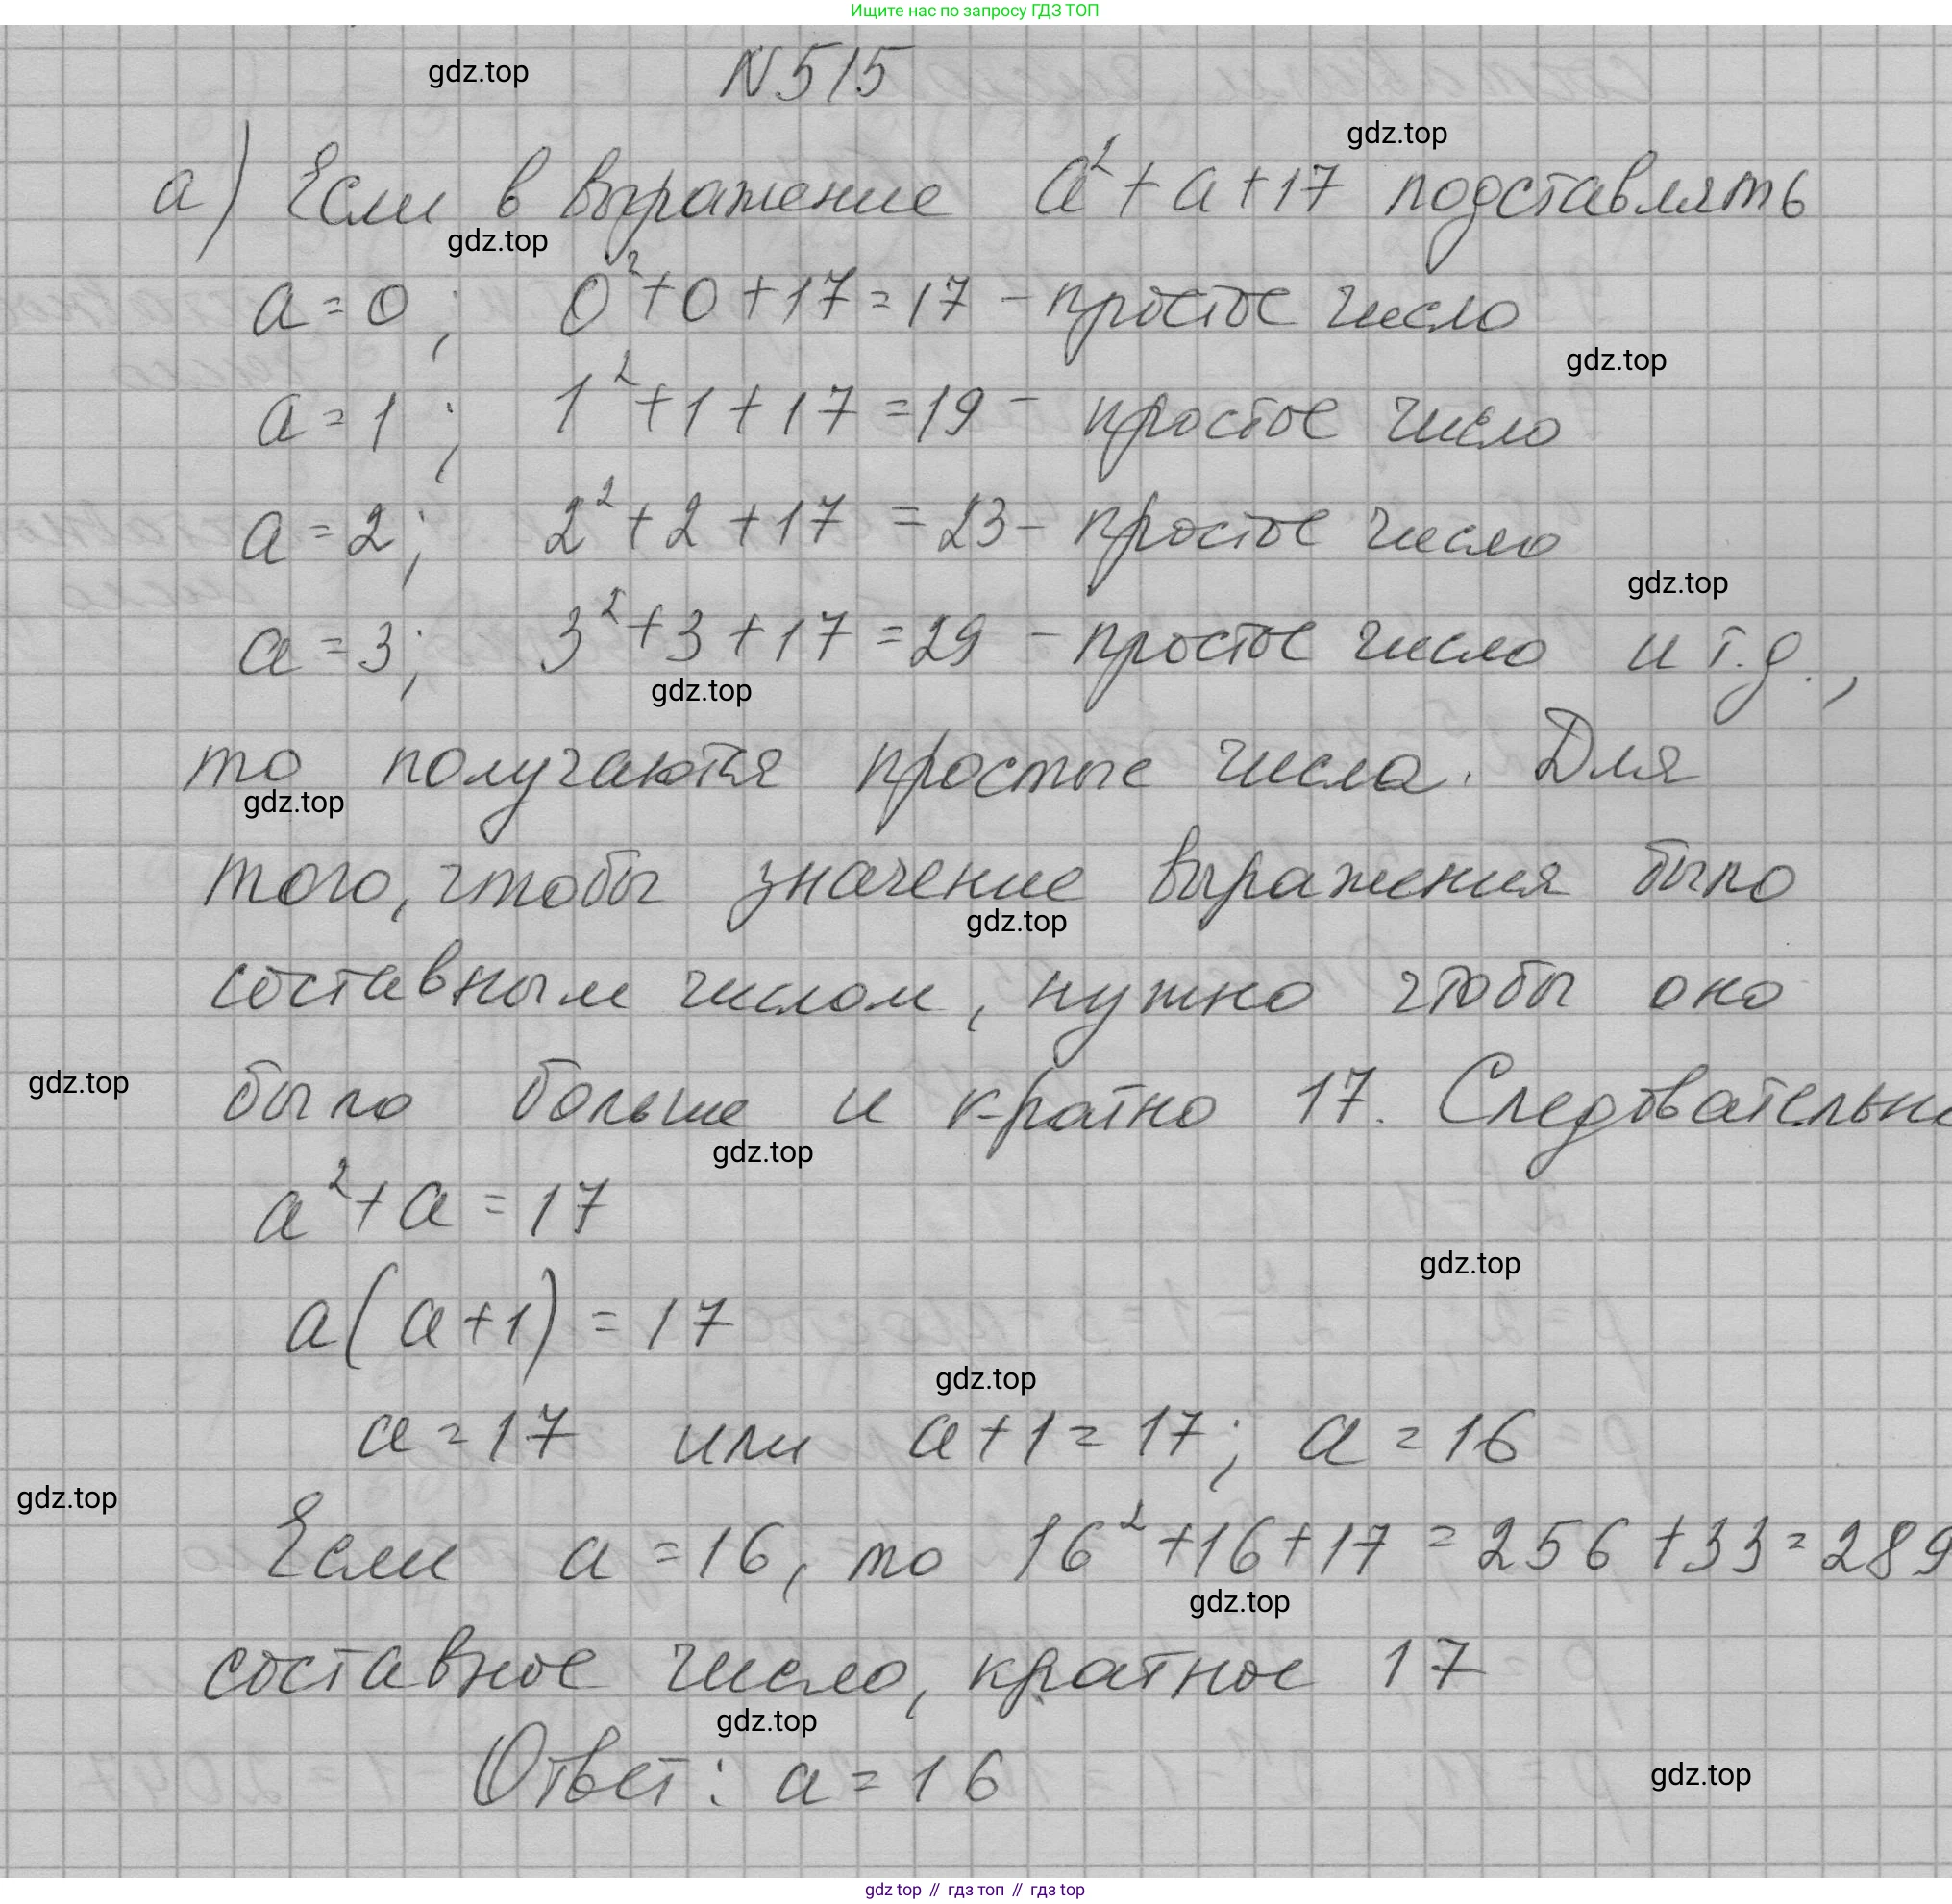 Ищите нас по запросу ГДЗ ТОП
N 515
gdz.top
gdz.top
а) Если в выражение a² + a + 17 подставлять
gdz.top
a = 0 ; 0² + 0 + 17 = 17 - простое число
gdz.top
a = 1 ; 1² + 1 + 17 = 19 - простое число
a = 2 ; 2² + 2 + 17 = 23 - простое число
gdz.top
a = 3 ; 3² + 3 + 17 = 29 - простое число и т.д.,
gdz.top
то получаются простые числа. Для
gdz.top
того, чтобы значение выражения было
gdz.top
составным числом, нужно чтобы оно
gdz.top
было больше и кратно 17. Следовательно
gdz.top
a² + a = 17
gdz.top
a(a+1) = 17
gdz.top
a = 17 или a+1 = 17; a = 16
gdz.top
Если a = 16, то 16² + 16 + 17 = 256 + 33 = 289
gdz.top
составное число, кратное 17
gdz.top
Ответ: a = 16
gdz.top
gdz top // гдз топ // гдз top